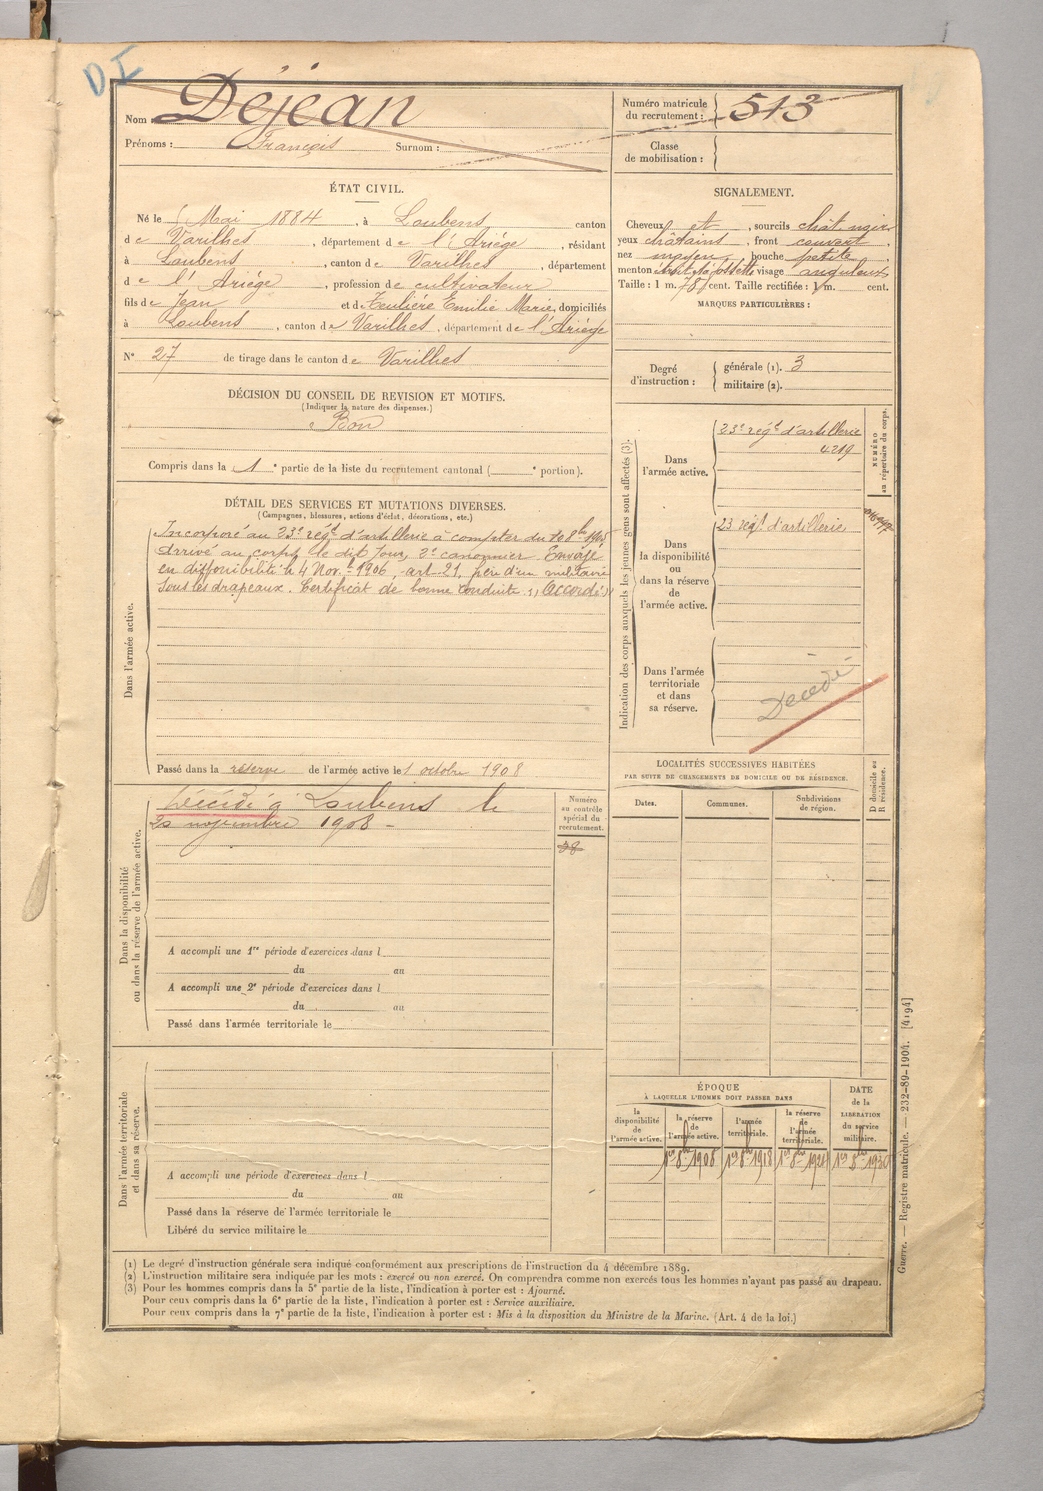 DI
Nom Déjean
Prénoms : François Surnom :
Numéro matricule du recrutement : 513
Classe de mobilisation :
ÉTAT CIVIL.
Né le Mai 1884, à Loubens canton
de Varilhes, département de l'Ariège, résidant
à Loubens, canton de Varilhes, département
de l'Ariège, profession de cultivateur
fils de Jean et de Teulière Emilie Marie, domiciliés
à Loubens, canton de Varilhes, département de l'Ariège
N° 27 de tirage dans le canton de Varilhes
SIGNALEMENT.
Cheveux et, sourcils chât. noir
yeux châtains, front couvert,
nez moyen, bouche petite
menton visage anguleux
Taille : 1 m. 78 cent. Taille rectifiée : 1 m. cent.
MARQUES PARTICULIÈRES :
Degré d'instruction : générale (1). 3
militaire (2).
DÉCISION DU CONSEIL DE REVISION ET MOTIFS.
(Indiquer la nature des dispenses.)
Bon
Compris dans la 1e partie de la liste du recrutement cantonal ( e portion).
DÉTAIL DES SERVICES ET MUTATIONS DIVERSES.
(Campagnes, blessures, actions d'éclat, décorations, etc.)
Dans l'armée active.
Incorporé au 23e régt d'artillerie à compter du 8bre 1905
Arrivé au corps le dit jour, 2e canonnier Envoyé
en disponibilité le 4 Nov. 1906, art. 21, père d'un militaire
sous les drapeaux. Certificat de bonne conduite "Accordé"
Passé dans la réserve de l'armée active le 1 octobre 1908
Indication des corps auxquels les jeunes gens sont affectés (3).
NUMÉRO au répertoire du corps.
Dans l'armée active.
23e régt d'artillerie
4219
Dans la disponibilité ou dans la réserve de l'armée active.
23 régt d'artillerie
Dans l'armée territoriale et dans sa réserve.
Décédé
Dans la disponibilité ou dans la réserve de l'armée active.
Décédé à Loubens le
20 novembre 1908 -
Numéro au contrôle spécial du recrutement.
38
A accompli une 1re période d'exercices dans l
du au
A accompli une 2e période d'exercices dans l
du au
Passé dans l'armée territoriale le
LOCALITÉS SUCCESSIVES HABITÉES
PAR SUITE DE CHANGEMENTS DE DOMICILE OU DE RÉSIDENCE.
D domicile ou R résidence.
Dates. Communes. Subdivisions de région.
Dans l'armée territoriale et dans sa réserve.
A accompli une période d'exercices dans l
du au
Passé dans la réserve de l'armée territoriale le
Libéré du service militaire le
ÉPOQUE
À LAQUELLE L'HOMME DOIT PASSER DANS
la disponibilité de l'armée active.
la réserve de l'armée active.
l'armée territoriale.
la réserve de l'armée territoriale.
DATE de la LIBÉRATION du service militaire.
1er 8bre 1908 1er 8bre 1918 1er 8bre 1924 1er 8bre 1930
(1) Le degré d'instruction générale sera indiqué conformément aux prescriptions de l'instruction du 4 décembre 1889.
(2) L'instruction militaire sera indiquée par les mots : exercé ou non exercé. On comprendra comme non exercés tous les hommes n'ayant pas passé au drapeau.
(3) Pour les hommes compris dans la 5e partie de la liste, l'indication à porter est : Ajourné.
Pour ceux compris dans la 6e partie de la liste, l'indication à porter est : Service auxiliaire.
Pour ceux compris dans la 7e partie de la liste, l'indication à porter est : Mis à la disposition du Ministre de la Marine. (Art. 4 de la loi.)
Guerre. — Registre matricule. — 232-89-1904. [4194]